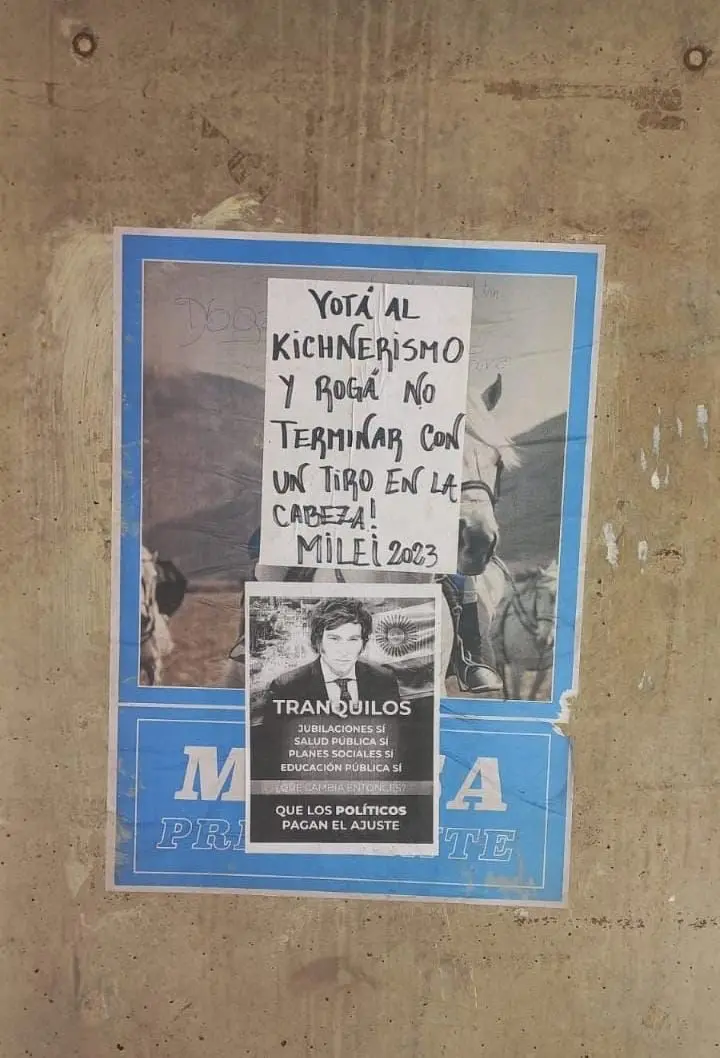 VOTÁ AL
KICHNERISMO
Y ROGÁ NO
TERMINAR CON
UN TIRO EN LA
CABEZA!
MILEI 2023
TRANQUILOS
JUBILACIONES SÍ
SALUD PÚBLICA SÍ
PLANES SOCIALES SÍ
EDUCACIÓN PÚBLICA SÍ
¿QUE CAMBIA ENTONCES?
QUE LOS POLÍTICOS
PAGAN EL AJUSTE
M A
PR NTE